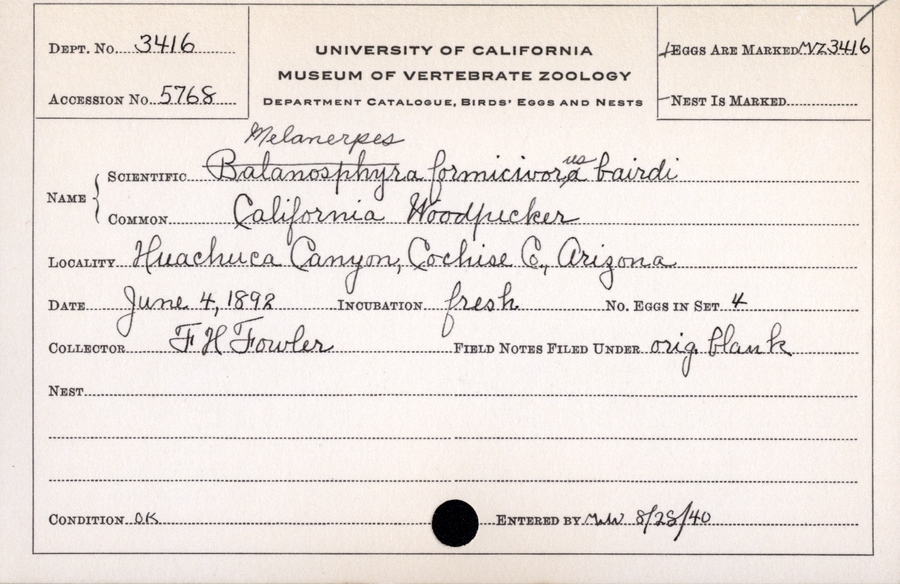 Dept. No. 3416
Accession No. 5768
UNIVERSITY OF CALIFORNIA
MUSEUM OF VERTEBRATE ZOOLOGY
Department Catalogue, Birds' Eggs and Nests
Eggs Are Marked MVZ3416
Nest Is Marked
Melanerpes
Name Scientific Balanosphyra formicivora us bairdi
Common California Woodpecker
Locality Huachuca Canyon, Cochise C., Arizona
Date June 4, 1892 Incubation fresh No. Eggs in Set 4
Collector F H Fowler Field Notes Filed Under orig. blank
Nest
Condition OK Entered by 8/28/40